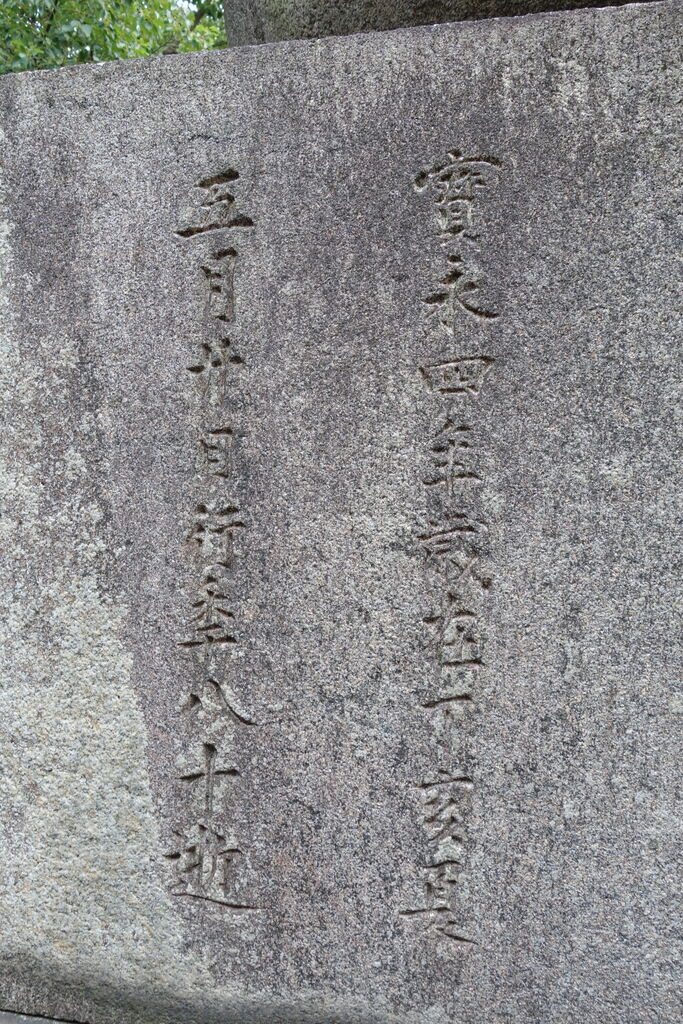 寶永四年歳在丁亥夏
五月廿日行秊八十逝